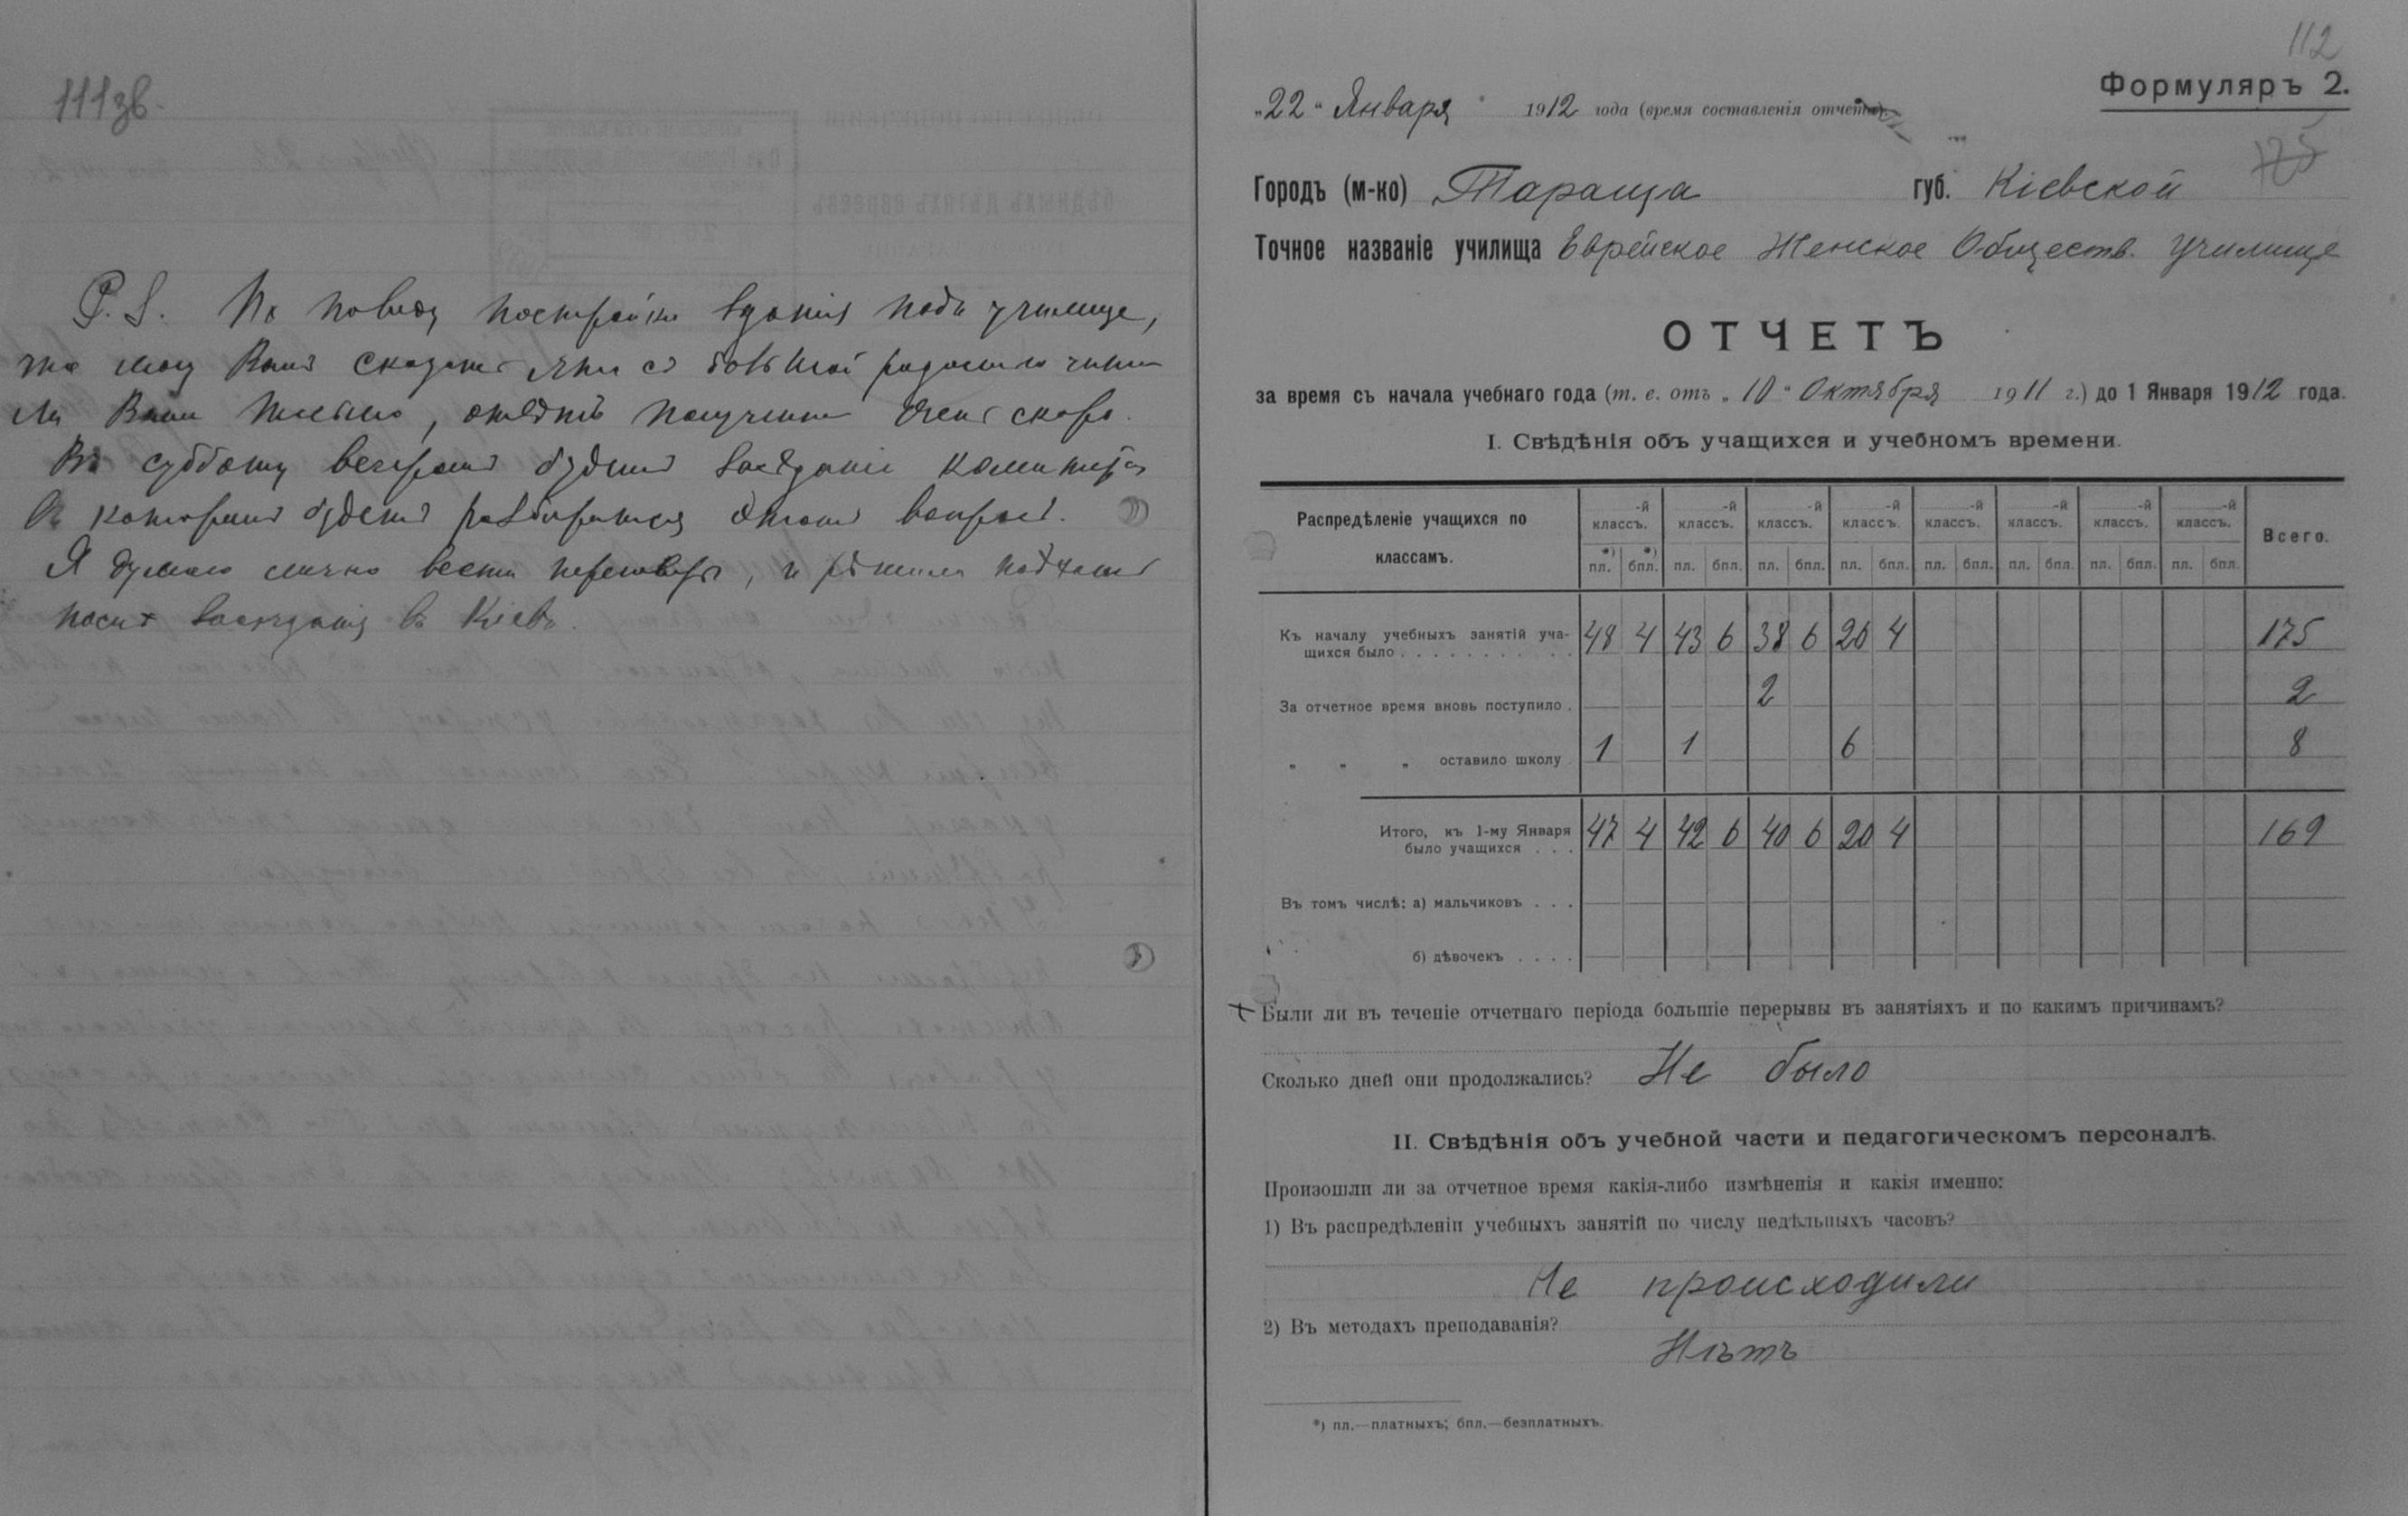 111зв.
P.S. По поводу постройки зданія подъ училище,
то могу Вамъ сказать что съ большой радостью
Ваше письмо, отвѣтъ получите очень скоро.
Въ субботу вечеромъ будетъ засѣданіе комитета
въ которомъ будетъ разбираться этотъ вопросъ.
Я думаю лично вести переговоры, и
послѣ засѣданія въ Кіевъ.
112
Формуляръ 2.
„22“ Января 1912 года (время составленія отчета).
175
Городъ (м-ко) Тараща губ. Кіевской
Точное названіе училища Еврейское Женское Обществ. Училище
ОТЧЕТЪ
за время съ начала учебнаго года (т. е. отъ „10“ Октября 1911 г.) до 1 Января 1912 года.
I. Свѣдѣнія объ учащихся и учебномъ времени.
Распредѣленіе учащихся по классамъ.
-й классъ. -й классъ. -й классъ. -й классъ. -й классъ. -й классъ. -й классъ. -й классъ. Всего.
*) пл. *) бпл. пл. бпл. пл. бпл. пл. бпл. пл. бпл. пл. бпл. пл. бпл. пл. бпл.
Къ началу учебныхъ занятій уча-
щихся было . . . . . . . . . . . 48 4 43 6 38 6 26 4 175
За отчетное время вновь поступило . 2 2
„ „ „ оставило школу . 1 1 6 8
Итого, къ 1-му Января
было учащихся . . . 47 4 42 6 40 6 20 4 169
Въ томъ числѣ: а) мальчиковъ . . .
б) дѣвочекъ . . . .
Были ли въ теченіе отчетнаго періода большіе перерывы въ занятіяхъ и по какимъ причинамъ?
Сколько дней они продолжались? Не было
II. Свѣдѣнія объ учебной части и педагогическомъ персоналѣ.
Произошли ли за отчетное время какія-либо измѣненія и какія именно:
1) Въ распредѣленіи учебныхъ занятій по числу недѣльныхъ часовъ?
Не происходили
2) Въ методахъ преподаванія?
Нѣтъ
*) пл.—платныхъ; бпл.—безплатныхъ.